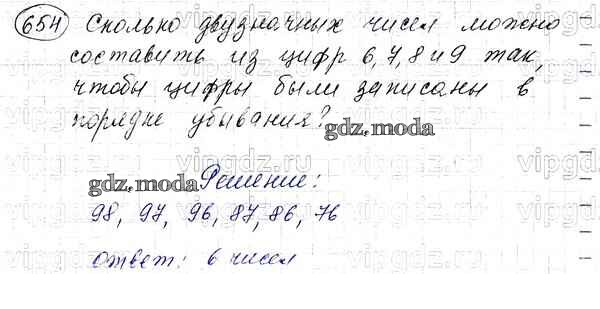 654 Сколько двузначных чисел можно
составить из цифр 6, 7, 8 и 9 так,
чтобы цифры были записаны в
порядке убывания?
gdz.moda
gdz.moda Решение:
98, 97, 96, 87, 86, 76
ответ: 6 чисел